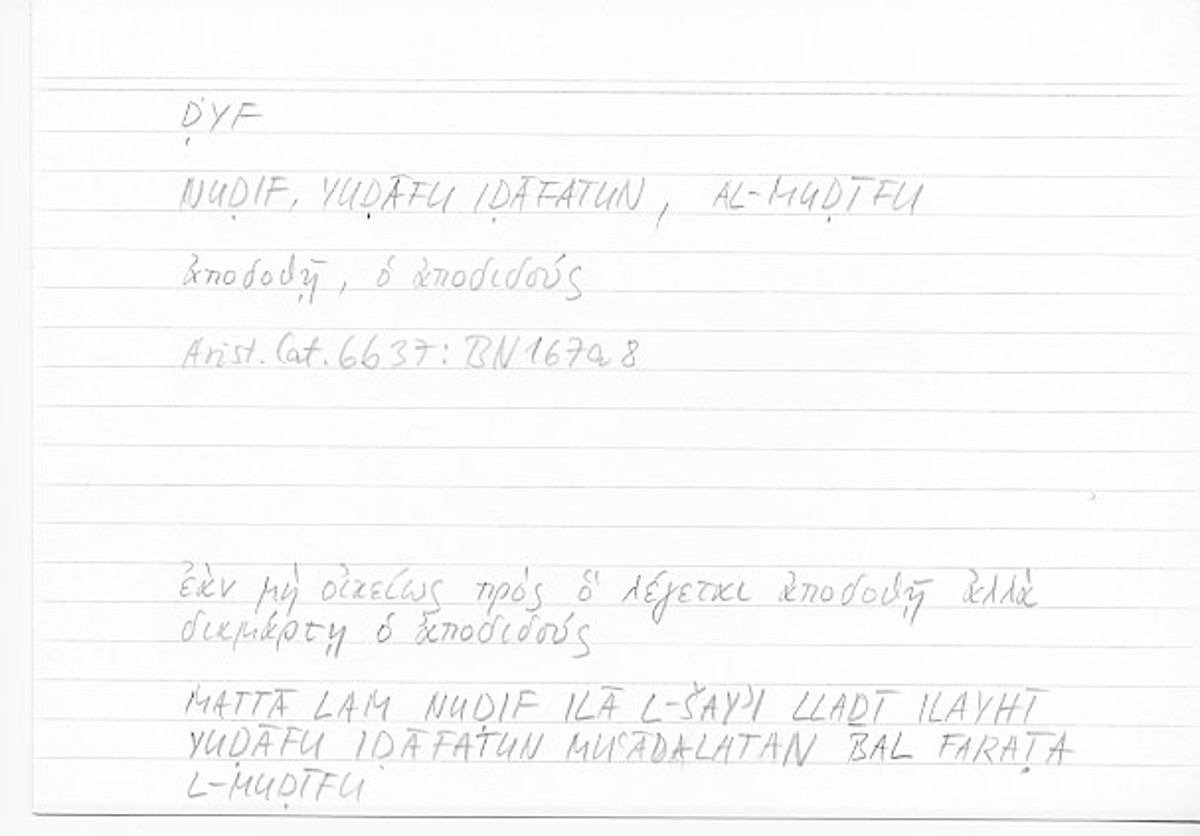 ḌYF
NUḌIF, YUḌĀFU IḌĀFATUN, AL-MUḌĪFU
ἀποδοθῇ, ὁ ἀποδιδούς
Arist. Cat. 6b37: BN 167a8
ἐὰν μὴ οἰκείως πρὸς ὃ λέγεται ἀποδοθῇ ἀλλὰ
διαμάρτῃ ὁ ἀποδιδούς
MATTĀ LAM NUḌIF ILĀ L-ŠAYʾI LLAḎĪ ILAYHĪ
YUḌĀFU IḌĀFATUN MUʿĀDALATAN BAL FARAṬA
L-MUḌĪFU